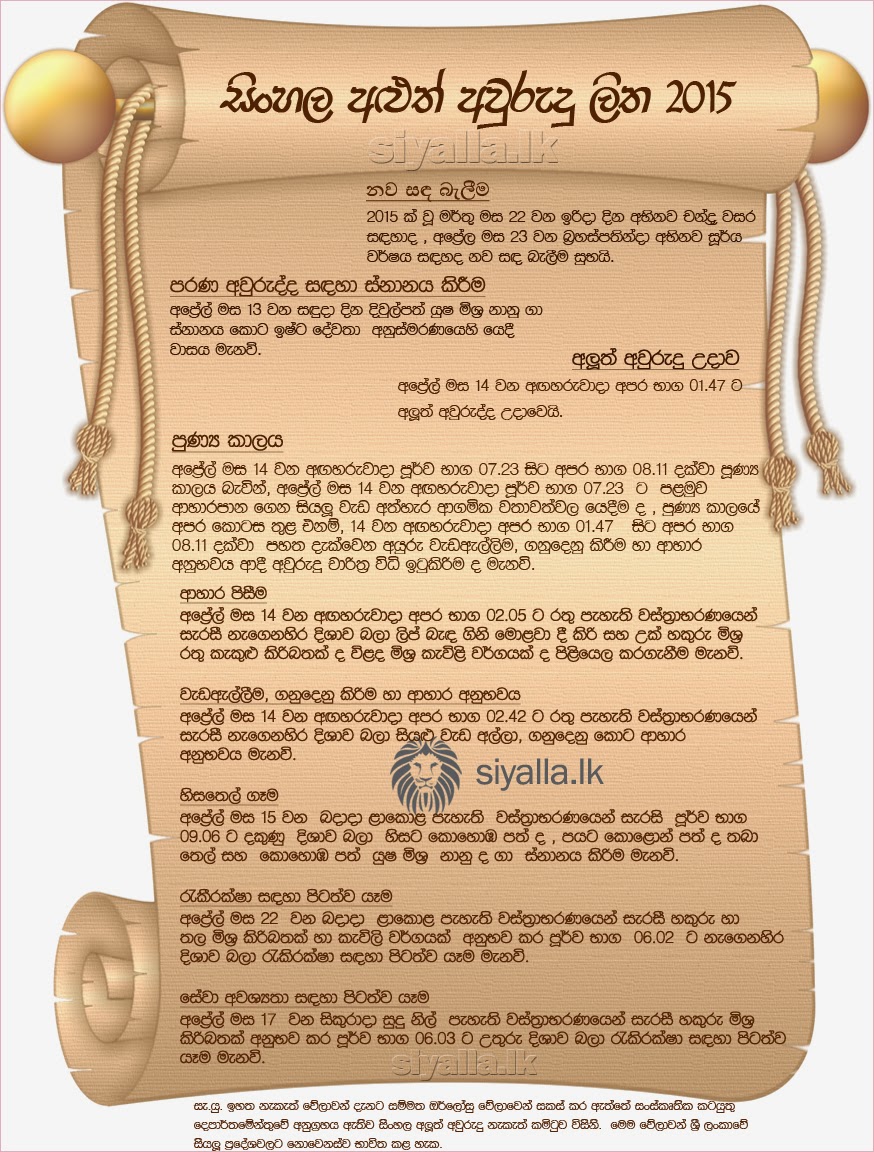 සිංහල අළුත් අවුරුදු ලිත 2015
siyalla.lk
නව සඳ බැලීම
2015 ක් වූ මර්තු මස 22 වන ඉරිදා දින අභිනව චන්ද්‍ර වසර
සඳහාද , අප්‍රේල මස 23 වන බ්‍රහස්පතින්දා අභිනව සූර්ය
වර්ෂය සඳහද නව සඳ බැලීම සුභයි.
පරණ අවුරුද්ද සඳහා ස්නානය කිරීම
අප්‍රේල් මස 13 වන සඳුදා දින දිවුල්පත් යුෂ මිශ්‍ර නානු ගා
ස්නානය කොට ඉෂ්ට දේවතා අනුස්මරණයෙහි යෙදී
වාසය මැනවි.
අලූත් අවුරුදු උදාව
අප්‍රේල් මස 14 වන අඟහරුවාදා අපර භාග 01.47 ට
අලූත් අවුරුද්ද උදාවෙයි.
පුණ්‍ය කාලය
අප්‍රේල් මස 14 වන අඟහරුවාදා පූර්ව භාග 07.23 සිට අපර භාග 08.11 දක්වා පූණ්‍ය
කාලය බැවින්, අප්‍රේල් මස 14 වන අඟහරුවාදා පූර්ව භාග 07.23 ට පළමුව
ආහාරපාන ගෙන සියලූ වැඩ අත්හැර ආගමික වතාවත්වල යෙදීම ද , පුණ්‍ය කාලයේ
අපර කොටස තුළ එනම්, 14 වන අඟහරුවාදා අපර භාග 01.47 සිට අපර භාග
08.11 දක්වා පහත දැක්වෙන අයුරු වැඩඇල්ලීම, ගනුදෙනු කිරීම හා ආහාර
අනුභවය ආදී අවුරුදු චාරිත්‍ර විධි ඉටුකිරීම ද මැනවි.
ආහාර පිසීම
අප්‍රේල් මස 14 වන අඟහරුවාදා අපර භාග 02.05 ට රතු පැහැති වස්ත්‍රාභරණයෙන්
සැරසී නැගෙනහිර දිශාව බලා ලිප් බැඳ ගිනි මොළවා දී කිරි සහ උක් හකුරු මිශ්‍ර
රතු කැකුළු කිරිබතක් ද විළඳ මිශ්‍ර කැවිළි වර්ගයක් ද පිළියෙල කරගැනීම මැනවි.
වැඩඇල්ලීම, ගනුදෙනු කිරීම හා ආහාර අනුභවය
අප්‍රේල් මස 14 වන අඟහරුවාදා අපර භාග 02.42 ට රතු පැහැති වස්ත්‍රාභරණයෙන්
සැරසී නැගෙනහිර දිශාව බලා සියළු වැඩ අල්ලා, ගනුදෙනු කොට ආහාර
අනුභවය මැනවි.
siyalla.lk
හිසතෙල් ගෑම
අප්‍රේල් මස 15 වන බදාදා ළාකොළ පැහැති වස්ත්‍රාභරණයෙන් සැරසී පූර්ව භාග
09.06 ට දකුණු දිශාව බලා හිසට කොහොඹ පත් ද , පයට කොළොන් පත් ද තබා
තෙල් සහ කොහොඹ පත් යුෂ මිශ්‍ර නානු ද ගා ස්නානය කිරීම මැනවි.
රැකීරක්ෂා සඳහා පිටත්ව යෑම
අප්‍රේල් මස 22 වන බදාදා ළාකොළ පැහැති වස්ත්‍රාභරණයෙන් සැරසී හකුරු හා
තල මිශ්‍ර කිරිබතක් හා කැවිලි වර්ගයක් අනුභව කර පූර්ව භාග 06.02 ට නැගෙනහිර
දිශාව බලා රැකීරක්ෂා සඳහා පිටත්ව යෑම මැනවි.
සේවා අවශ්‍යතා සඳහා පිටත්ව යෑම
අප්‍රේල් මස 17 වන සිකුරාදා සුදු නිල් පැහැති වස්ත්‍රාභරණයෙන් සැරසී හකුරු මිශ්‍ර
කිරිබතක් අනුභව කර පූර්ව භාග 06.03 ට උතුරු දිශාව බලා රැකීරක්ෂා සඳහා පිටත්ව
යෑම මැනවි.
siyalla.lk
සැ.යු. ඉහත නැකැත් වේලාවන් දැනට සම්මත ඔර්ලෝසු වේලාවෙන් සකස් කර ඇත්තේ සංස්කෘතික කටයුතු
දෙපාර්තමේන්තුවේ අනුග්‍රහය ඇතිව සිංහල අලූත් අවුරුදු නැකැත් කමිටුව විසිනි. මෙම වේලාවන් ශ්‍රී ලංකාවේ
සියලූ ප්‍රදේශවලට නොවෙනස්ව භාවිත කළ හැක.